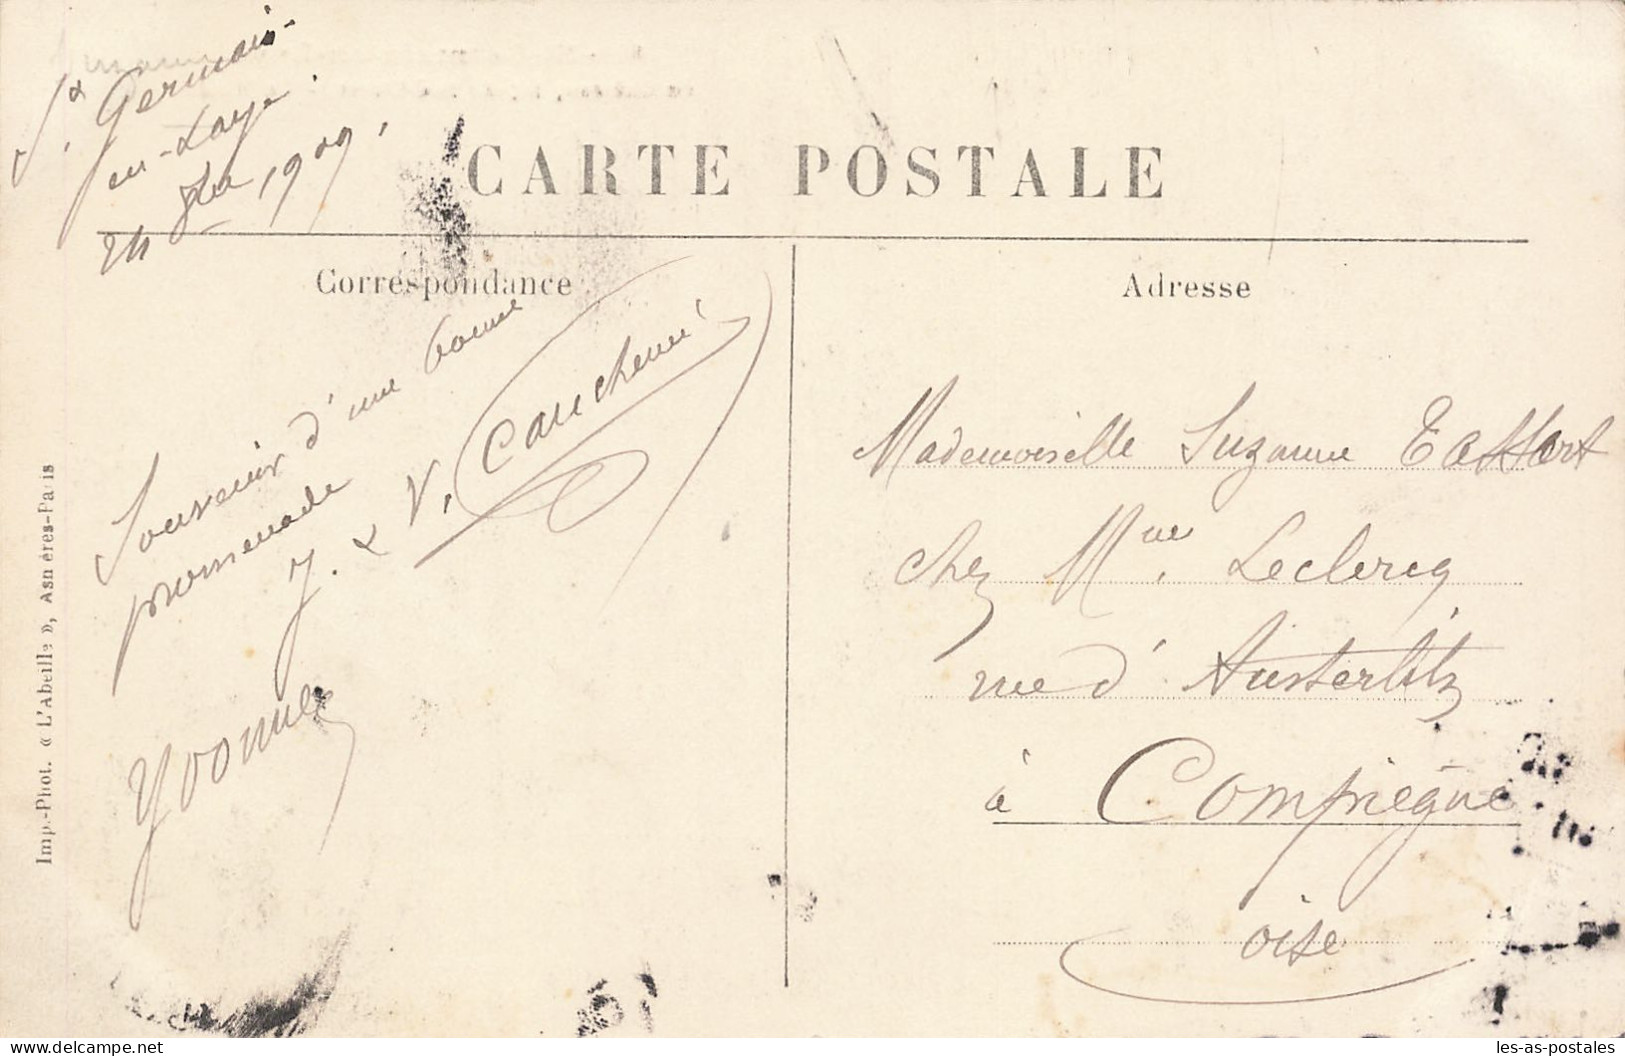 St Germain-
en-Laye
24 1909.
CARTE POSTALE
Correspondance
Adresse
Souvenir d'une bonne
promenade
J. & V.
Yvonne
Mademoiselle Suzanne Tassart
chez Mme. Leclercq
rue d'Austerlitz
à Compiègne
oise
Imp.-Phot. « L'Abeille », Asnières-Paris
les-as-postales